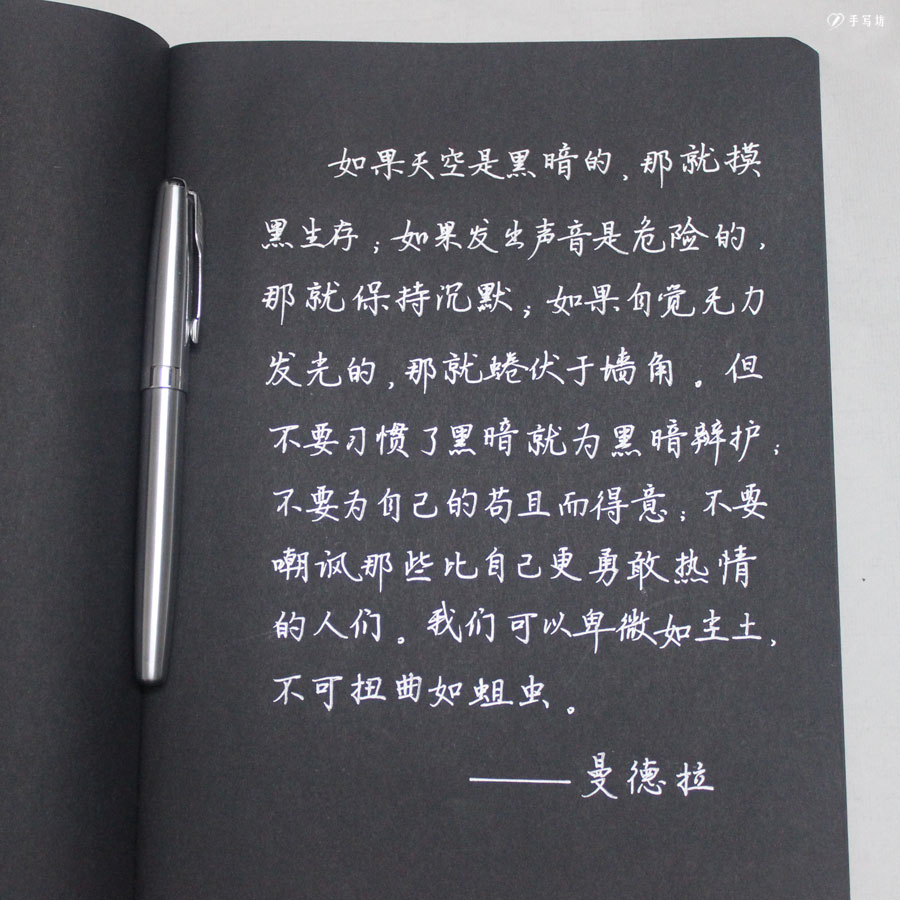 手写坊
如果天空是黑暗的，那就摸
黑生存；如果发出声音是危险的，
那就保持沉默；如果自觉无力
发光的，那就蜷伏于墙角。但
不要习惯了黑暗就为黑暗辩护；
不要为自己的苟且而得意；不要
嘲讽那些比自己更勇敢热情
的人们。我们可以卑微如尘土，
不可扭曲如蛆虫。
——曼德拉